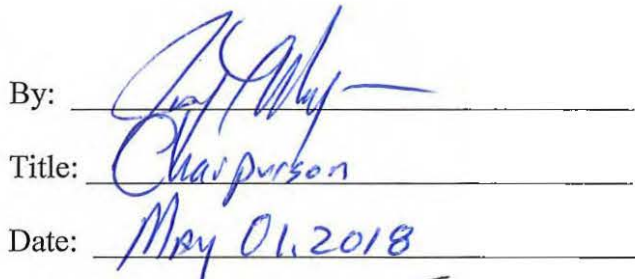 By:
Title: Chairpurson
Date: May 01.2018